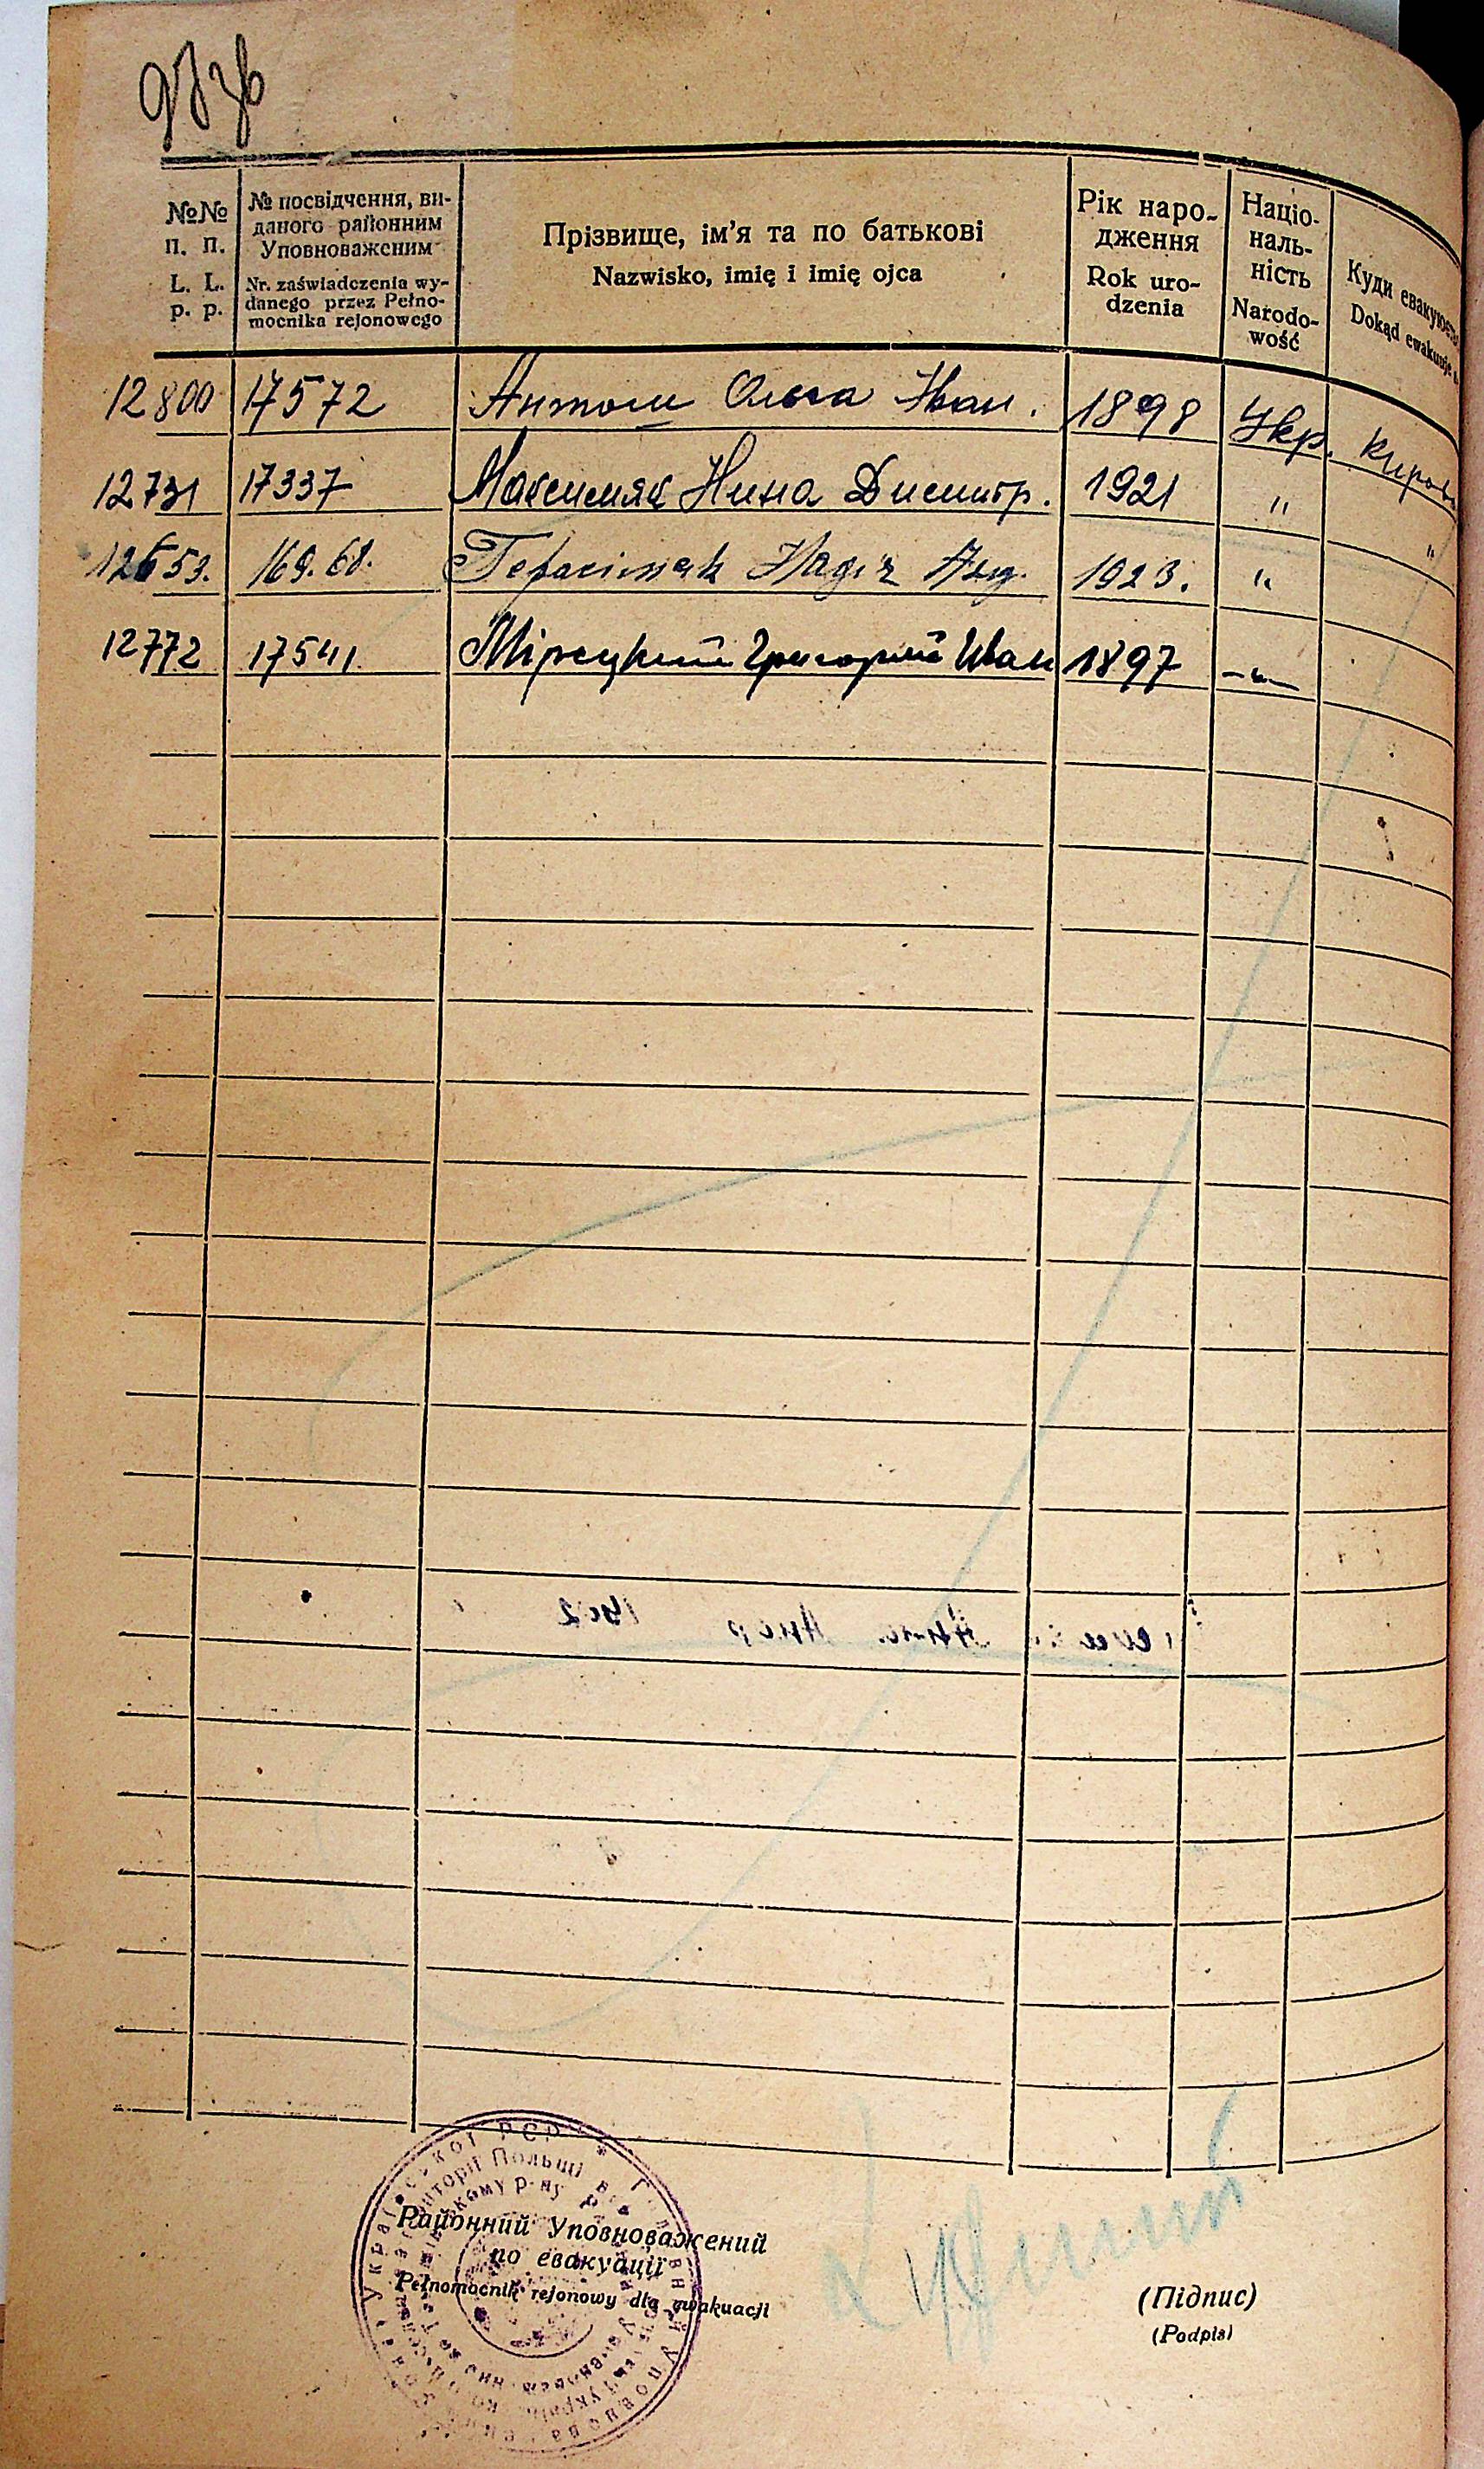 №№ п. п. L. L. p. p.
№ посвідчення, виданого районним Уповноваженим Nr. zaświadczenia wydanego przez Pełnomocnika rejonowego
Прізвище, ім'я та по батькові Nazwisko, imię i imię ojca
Рік народження Rok urodzenia
Національність Narodowość
Куди евакуюєть Dokąd ewakuuje
12800 17572 Антони Ольга Иван. 1898 Укр. Киров
12731 17337 Максимяк Нина Дмитр. 1921 "  "
12653. 169.68. Герасімяк Надія Анд. 1923. "
12772 17541 Мірецкий Григорий Иван 1897 -"-
Районний Уповноважений
по евакуації
Pełnomocnik rejonowy dla ewakuacji
(Підпис)
(Podpis)